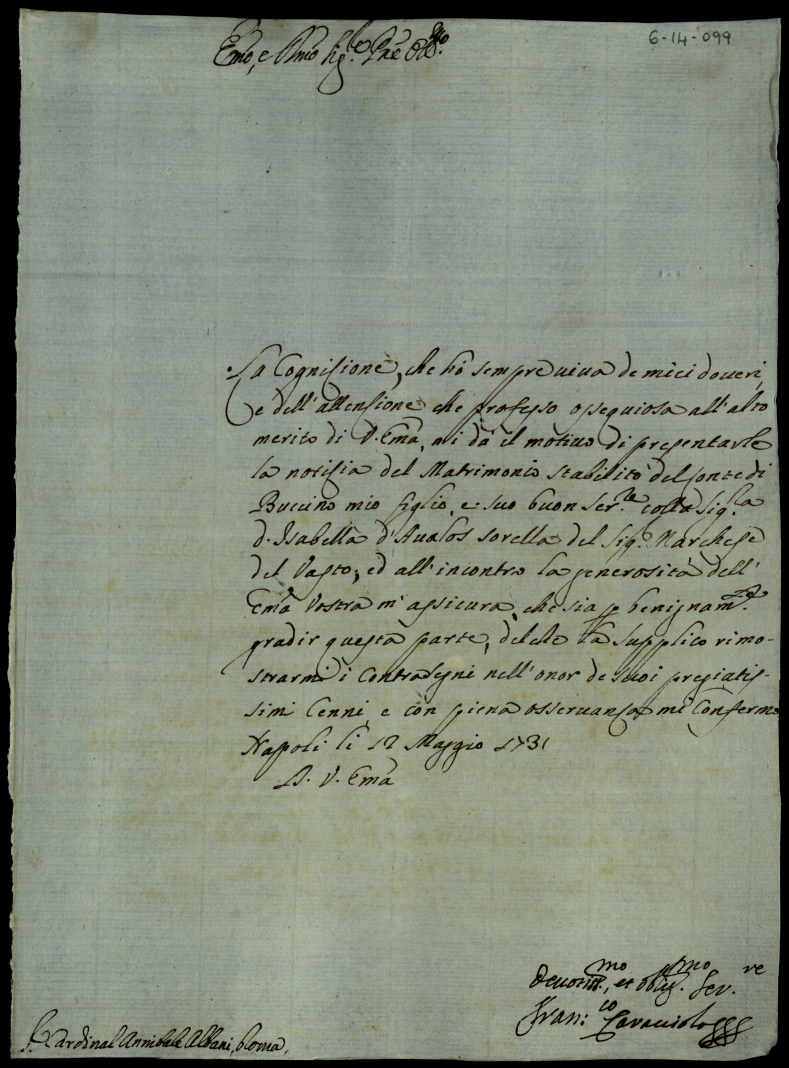 6-14-099
Emo, e Rmo Sig.re Pne Oss.mo
La Cognisione, che hò sempre viva de miei doveri,
e dell'attensione che professo ossequiosa all'alto
merito di V. Ema, mi dà il motivo di presentarle
la notisia del Matrimonio stabilito del Conte di
Buccino mio figlio, e suo buon Ser.re colla Sig.ra
d. Isabella d'Avalos sorella del Sig.r Marchese
del Vasto; ed all'incontro la generosità dell'
Ema Vostra m'assicura, che sia p benignam.te
gradir questa parte, del che la supplico rimo-
strarmi i contrasegni nell'onor de suoi pregiatis-
simi Cenni, e con piena osservansa mi Confermo
Napoli li 12 Maggio 1731
D. V. Ema
Devotis.mo, et oblig.mo Ser.re
Fran.co Caracciolo
S. Cardinal Annibale Albani, Roma,